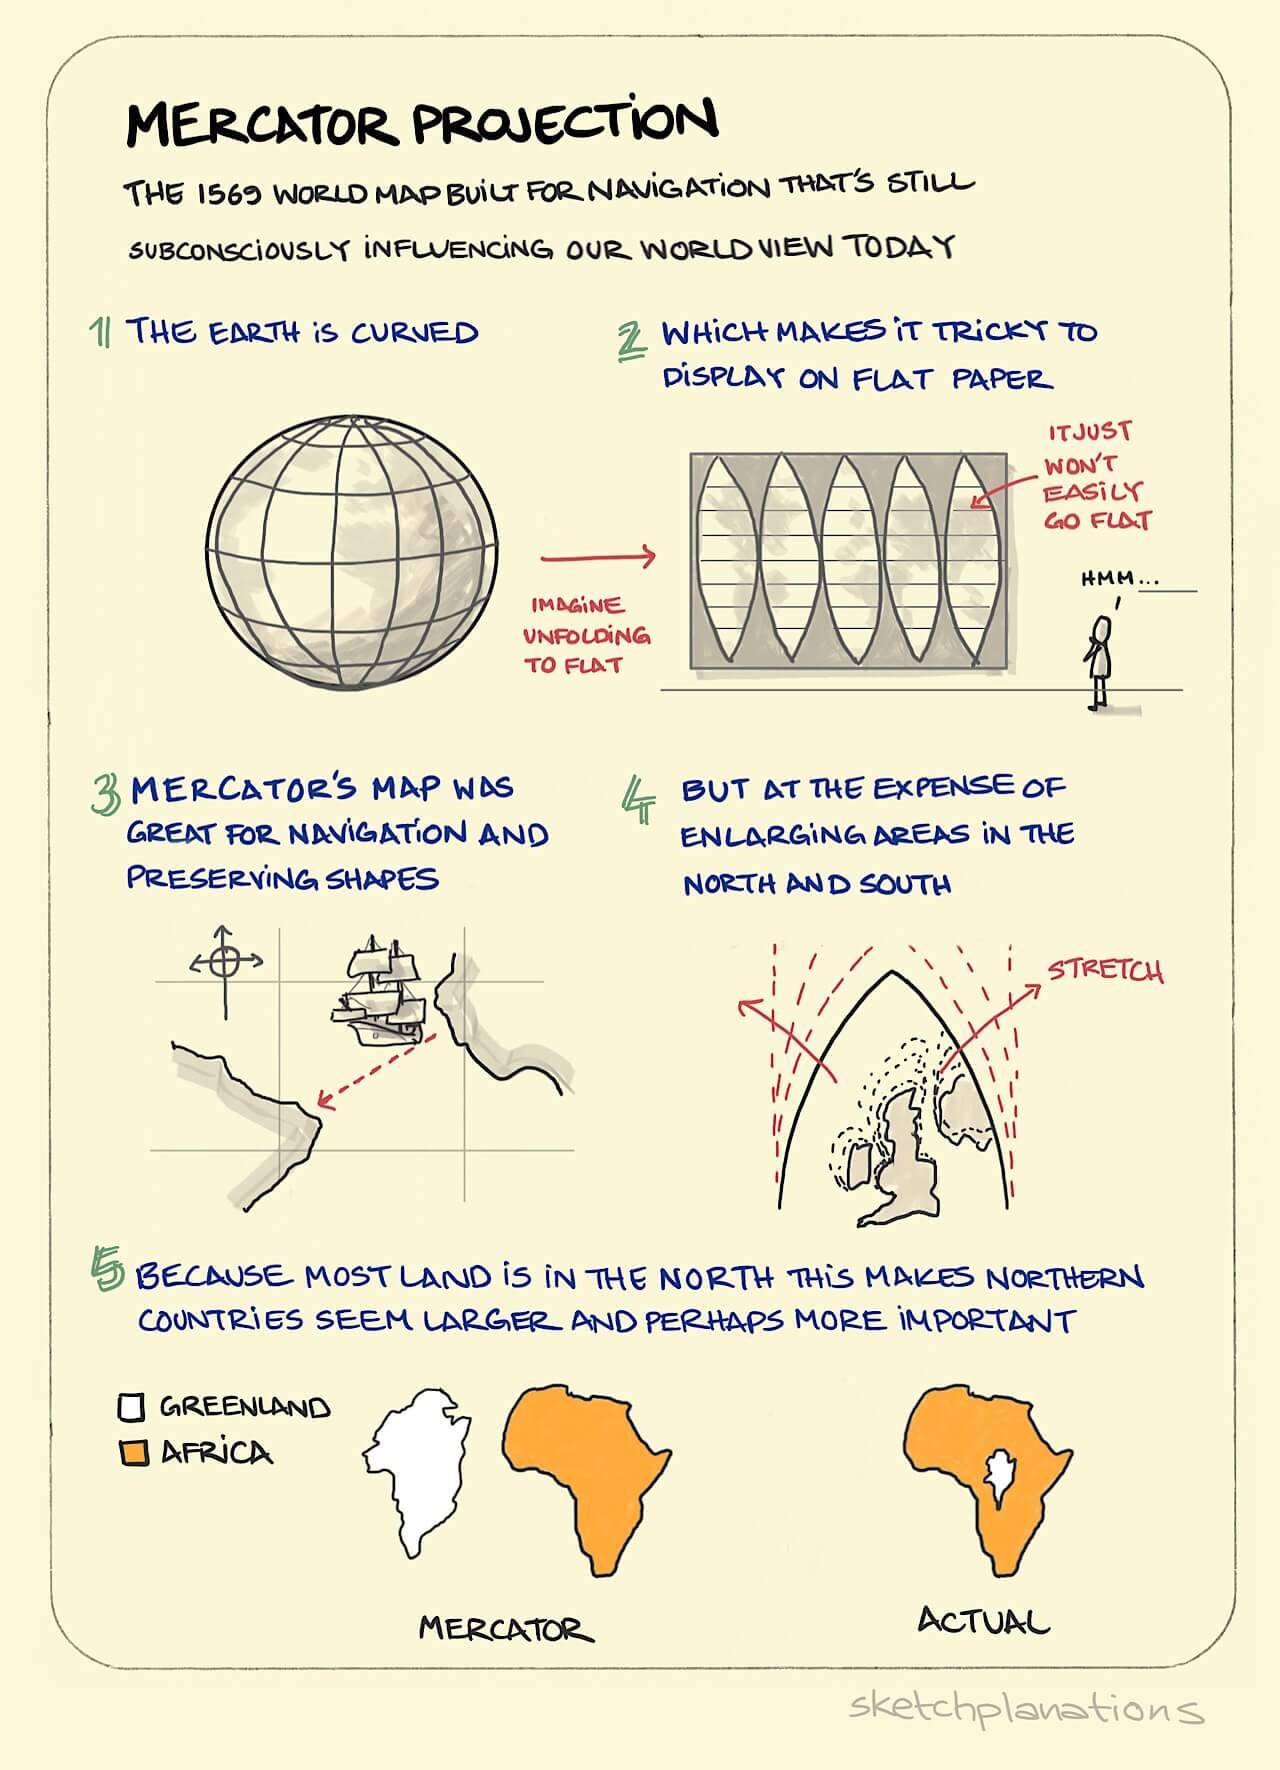 MERCATOR PROJECTION
THE 1569 WORLD MAP BUILT FOR NAVIGATION THAT'S STILL
SUBCONSCIOUSLY INFLUENCING OUR WORLD VIEW TODAY
1 THE EARTH IS CURVED
2 WHICH MAKES IT TRICKY TO
DISPLAY ON FLAT PAPER
IT JUST
WON'T
EASILY
GO FLAT
HMM...
IMAGINE
UNFOLDING
TO FLAT
3 MERCATOR'S MAP WAS
GREAT FOR NAVIGATION AND
PRESERVING SHAPES
4 BUT AT THE EXPENSE OF
ENLARGING AREAS IN THE
NORTH AND SOUTH
STRETCH
5 BECAUSE MOST LAND IS IN THE NORTH THIS MAKES NORTHERN
COUNTRIES SEEM LARGER AND PERHAPS MORE IMPORTANT
GREENLAND
AFRICA
MERCATOR
ACTUAL
sketchplanations